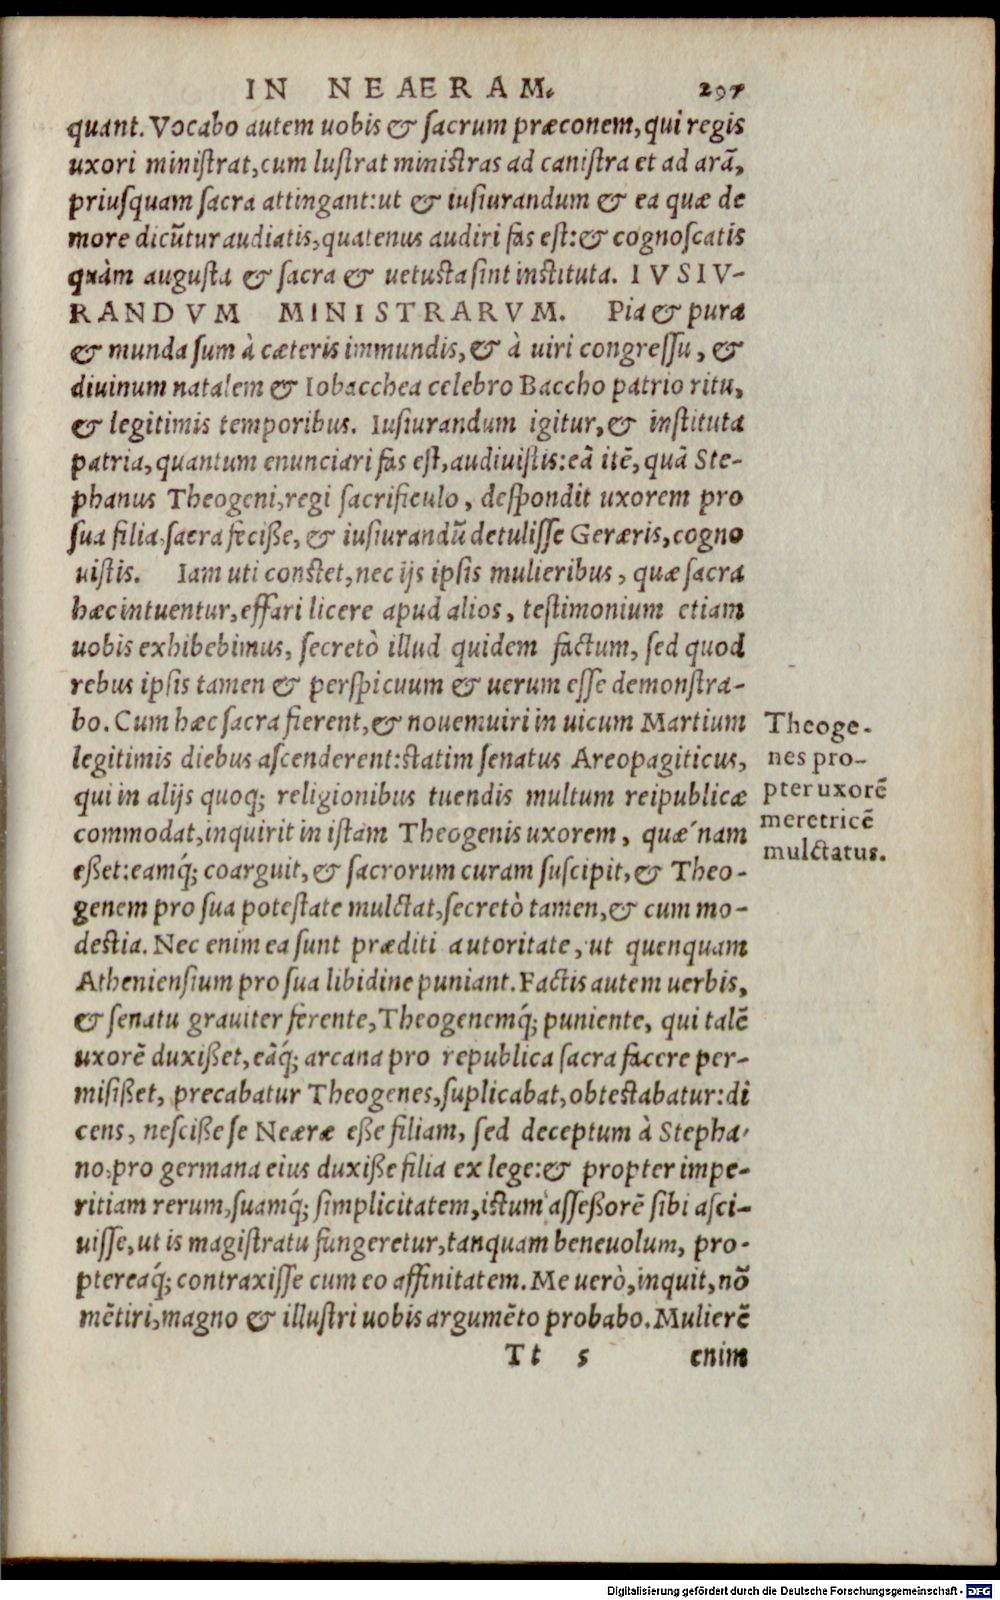 IN NEAERAM. 297
quant. Vocabo autem uobis & sacrum præconem, qui regis
uxori ministrat, cum lustrat ministras ad canistra et ad arā,
priusquam sacra attingant: ut & iusiurandum & ea quæ de
more dicūtur audiatis, quatenus audiri fas est: & cognoscatis
quàm augusta & sacra & uetusta sint instituta. IVSIV-
RANDVM MINISTRARVM. Pia & pura
& munda sum à cæteris immundis, & à uiri congressu, &
diuinum natalem & Iobacchea celebro Baccho patrio ritu,
& legitimis temporibus. Iusiurandum igitur, & instituta
patria, quantum enunciari fas est, audiuistis: eā itē, quā Ste-
phanus Theogeni, regi sacrificulo, despondit uxorem pro
sua filia, sacra feciße, & iusiurandū detulisse Geræris, cogno
uistis. Iam uti constet, nec ijs ipsis mulieribus, quæ sacra
hæc intuentur, effari licere apud alios, testimonium etiam
uobis exhibebimus, secretò illud quidem factum, sed quod
rebus ipsis tamen & perspicuum & uerum esse demonstra-
bo. Cum hæc sacra fierent, & nouemuiri in uicum Martium
legitimis diebus ascenderent: statim senatus Areopagiticus,
qui in alijs quoq; religionibus tuendis multum reipublicæ
commodat, inquirit in istam Theogenis uxorem, quæ nam
eßet: eamq́; coarguit, & sacrorum curam suscipit, & Theo-
genem pro sua potestate mulctat, secretò tamen, & cum mo-
destia. Nec enim ea sunt præditi autoritate, ut quenquam
Atheniensium pro sua libidine puniant. Factis autem uerbis,
& senatu grauiter ferente, Theogenemq́; puniente, qui talē
uxorē duxißet, eāq́; arcana pro republica sacra facere per-
misißet, precabatur Theogenes, suplicabat, obtestabatur: di
cens, nesciße se Neæræ eße filiam, sed deceptum à Stepha-
no, pro germana eius duxiße filia ex lege: & propter impe-
ritiam rerum, suamq́; simplicitatem, istum asseßorē sibi asci-
uisse, ut is magistratu fungeretur, tanquam beneuolum, pro-
ptereaq́; contraxisse cum eo affinitatem. Me uerò, inquit, nō
mētiri, magno & illustri uobis argumēto probabo. Mulierē
Tt 5 enim
Theoge-
nes pro-
pter uxorē
meretricē
mulctatus.
Digitalisierung gefördert durch die Deutsche Forschungsgemeinschaft - DFG